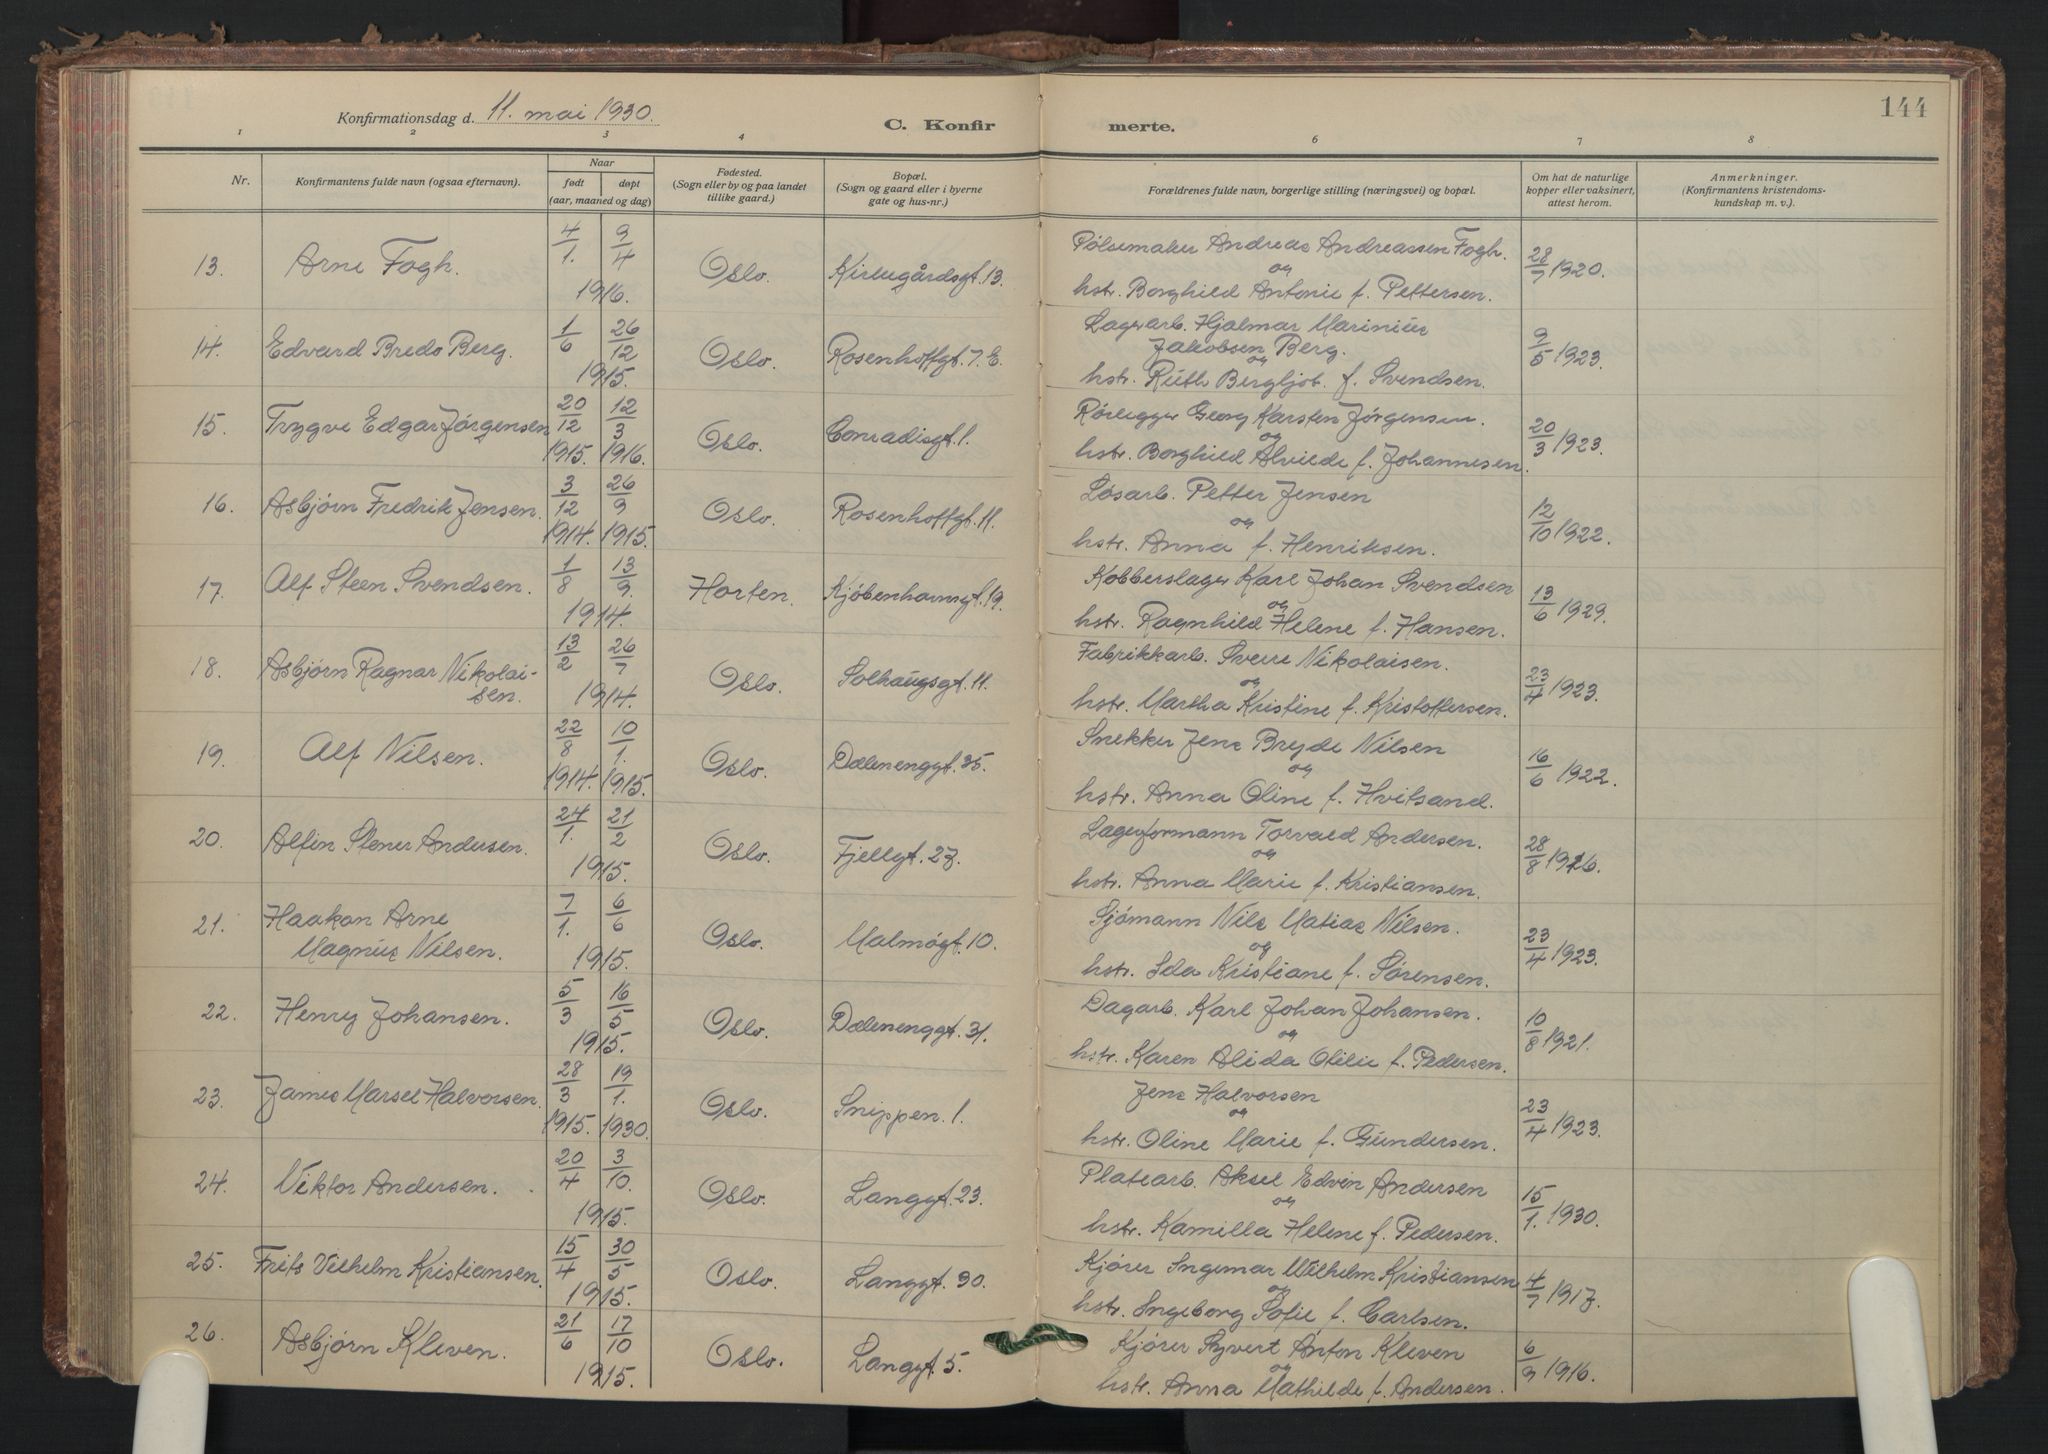 144
Konfirmationsdag d. 11. mai 1930.
C. Konfirmerte.
1 2 3 4 6 7 8
Nr.
Konfirmantens fulde navn (ogsaa efternavn).
Naar
født
døpt
(aar, maaned og dag)
Fødested.
(Sogn eller by og paa landet
tillike gaard.)
Bopæl.
(Sogn og gaard eller i byerne
gate og hus-nr.)
Forældrenes fulde navn, borgerlige stilling (næringsvei) og bopæl.
Om hat de naturlige
kopper eller vaksinert,
attest herom.
Anmerkninger.
(Konfirmantens kristendoms-
kundskap m. v.).
13. Arne Fogh. 4/1. 9/4 1916. Oslo. Kirkegårdsgt. 13. Pølsemaker Andreas Andreassen Fogh.
og
hstr. Borghild Antonie f. Pettersen. 28/7 1920.
14. Edvard Bredo Berg. 1/6 26/12 1915. Oslo. Rosenhoffgt. 7. E. Lagerarb. Hjalmar Marinius
Jakobsen Berg.
og
hstr. Ruth Bergljot. f. Svendsen. 9/5 1923.
15. Trygve Edgar Jörgensen 20/12 1915. 12/3 1916. Oslo. Conradisgt. 1. Rørlegger Georg Karsten Jörgensen.
og
hstr. Borghild Alvilde f. Johannesen. 20/3 1923.
16. Asbjörn Fredrik Jensen. 3/12 1914. 26/9 1915. Oslo. Rosenhoffgt. 11. Løsarb. Petter Jensen
og
hstr. Anna f. Henriksen. 12/10 1922.
17. Alf Steen Svendsen. 1/8 13/9. 1914. Horten. Kjöbenhavnsgt. 19. Kobberslager Karl Johan Svendsen
og
hstr. Ragnhild Helene f. Hansen. 13/6 1929.
18. Asbjörn Ragnar Nikolai-
sen. 13/2 26/7 1914. Oslo. Solhaugsgt. 11. Fabrikkarb. Sverre Nikolaisen.
og
hstr. Martha Kristine f. Kristoffersen. 23/4 1923.
19. Alf Nilsen. 22/8 1914. 10/1. 1915. Oslo. Dælenenggt. 35. Snekker Jens Bryde Nilsen
og
hstr. Anna Oline f. Hvitsand. 16/6 1922.
20. Alfin Stener Andersen. 24/1. 21/2 1915. Oslo. Fjellgt. 27. Lagerformann Torvald Andersen.
og
hstr. Anna Marie f. Kristiansen. 28/8 1926.
21. Haakon Arne
Magnus Nilsen. 7/1. 6/6 1915. Oslo. Malmögt. 10. Sjömann Nils Matias Nilsen.
og
hstr. Ida Kristiane f. Sörensen. 23/4 1923.
22. Henry Johansen. 5/3 16/5 1915. Oslo. Dælenenggt. 31. Dagarb. Karl Johan Johansen.
og
hstr. Karen Alida Otilie f. Pedersen. 10/8 1921.
23. James Marsel Halvorsen. 28/3 1915. 19/1. 1930. Oslo. Snippen. 1. Jens Halvorsen
og
hstr. Oline Marie f. Gundersen. 23/4 1923.
24. Viktor Andersen. 20/4 3/10. 1915. Oslo. Langgt. 23. Platearb. Aksel Edvin Andersen
og
hstr. Kamilla Helene f. Pedersen. 15/1. 1930.
25. Frits Vilhelm Kristiansen. 15/4 30/5 1915. Oslo. Langgt. 30. Kjörer Ingemar Wilhelm Kristiansen
og
hstr. Ingeborg Sofie f. Carlsen. 4/7 1917.
26. Asbjörn Kleven. 21/6 17/10 1915. Oslo. Langgt. 5. Kjörer Syvert Anton Kleven
og
hstr. Anna Mathilde f. Andersen. 6/9 1916.